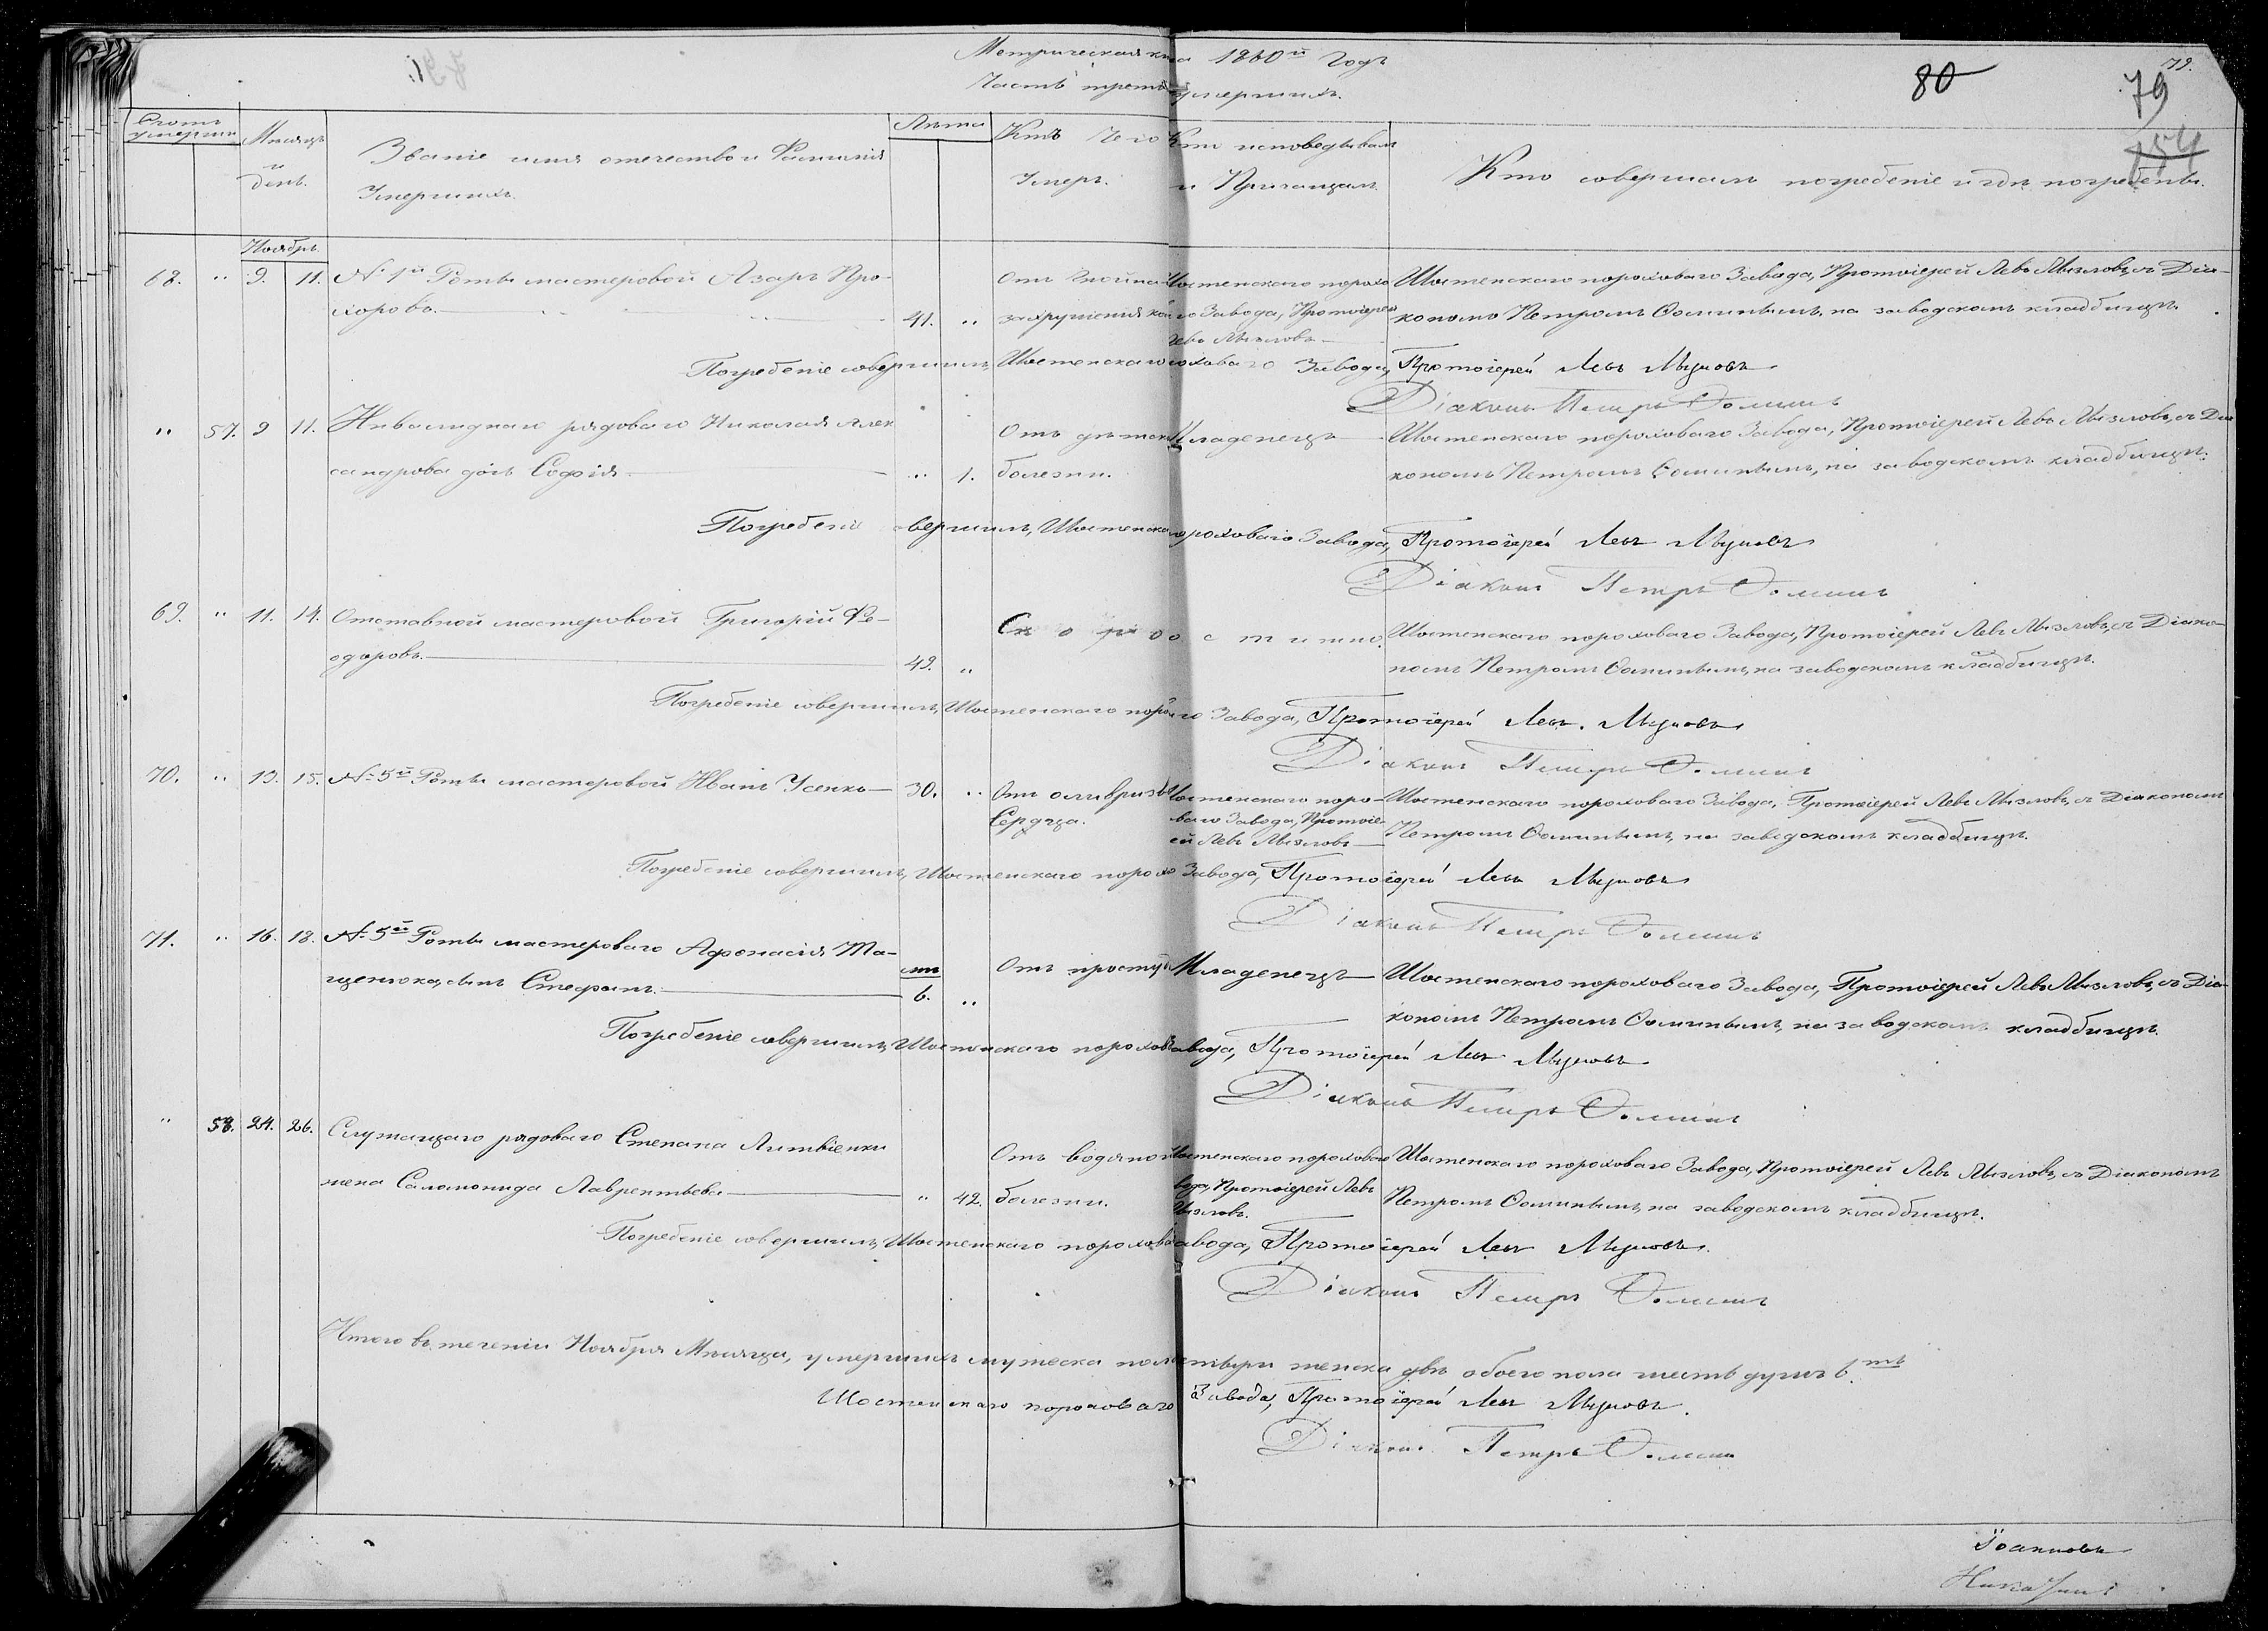 Метрическая кни а 1860й Годъ
Часть треть умершихъ.
80
79.
79
154
Счетъ умерши
Мѣсяцъ и день.
Званіе имя отечество и Фамилія Умершихъ.
Лѣта
Отъ Чего Умеръ.
Кто исповедывалъ и Пріощалъ
Кто совершалъ погребеніе и гдѣ погребены.
Ноябрь
68. " 9. 11. № 1й Роты мастеровой Азаръ Про-
хоровъ. 41. "
Шостенскаго порохо
го Завода, Протоіерей
Левъ Мызловъ
Шостенскаго пороховаго Завода, Протоіерей Левъ Мызловъ, съ Діа-
кономъ Петромъ Ѳоминымъ, на заводскомъ кладбищѣ.
Погребеніе совершилъ, Шостенскаго роховаго Завода, Протоіерей Левъ Мызловъ
Діаконъ Петръ Ѳоминъ
" 57. 9 11. Инвалиднаго рядоваго Николая Алек
сандрова дочь Софія " 1.
Отъ дѣтск
болезни.
Младенецъ
Шостенскаго пороховаго Завода, Протоіерей Левъ Мызловъ, съ Діа
кономъ Петромъ Ѳоминымъ, на заводскомъ кладбищѣ.
Погребеніе вершилъ, Шостенска ороховаго Завода, Протоіерей Левъ Мызловъ
Діаконъ Петръ Ѳоминъ
69. " 11. 14. Отставной мастеровой Григорій Фе-
одоровъ. 49. "
Скоропостижно.
Шостенскаго пороховаго Завода, Протоіерей Левъ Мызловъ, съ Діако-
номъ Петромъ Ѳоминымъ, на заводскомъ кладбищѣ.
Погребеніе совершилъ, Шостенскаго поро го Завода, Протоіерей Левъ Мызловъ
Діаконъ Петръ Ѳоминъ
70. " 13. 15. № 5й Роты мастеровой Иванъ Усенко 30. "
Сердца.
Шостенскаго поро-
ваго Завода, Протоіе-
ей Левъ Мызловъ
Шостенскаго пороховаго Завода, Протоіерей Левъ Мызловъ, съ Діакономъ
Петромъ Ѳоминымъ, на заводскомъ кладбищѣ.
Погребеніе совершилъ, Шостенскаго порохо Завода, Протоіерей Левъ Мызловъ
Діаконъ Петръ Ѳоминъ
71. " 16. 18. № 5й Роты мастероваго Афонасія Та-
щенюка, сынъ Стефанъ. 6. "
Отъ простуд
Младенецъ
Шостенскаго пороховаго Завода, Протоіерей Левъ Мызловъ, съ Діа-
кономъ Петромъ Ѳоминымъ, на заводскомъ кладбищѣ.
Погребеніе совершилъ, Шостенскаго порохов авода, Протоіерей Левъ Мызловъ
Діаконъ Петръ Ѳоминъ
" 58. 24. 26. Служащаго рядоваго Степана Литвіенки
жена Саломонида Лаврентьева " 42.
Отъ водяной
болезни.
Шостенскаго порохова
вода, Протоіерей Левъ
Мызловъ.
Шостенскаго пороховаго Завода, Протоіерей Левъ Мызловъ, съ Діакономъ
Петромъ Ѳоминымъ, на заводскомъ кладбищѣ.
Погребеніе совершилъ, Шостенскаго порохова авода, Протоіерей Левъ Мызловъ.
Діаконъ Петръ Ѳоминъ
Итого въ теченіи Ноября Мѣсяца, умершихъ мужеска пол етыри женска двѣ обоего пола шесть душъ 6.ть
Шостенскаго пороховаго Завода, Протоіерей Левъ Мызловъ.
Діаконъ Петръ Ѳоминъ
Іоанновъ